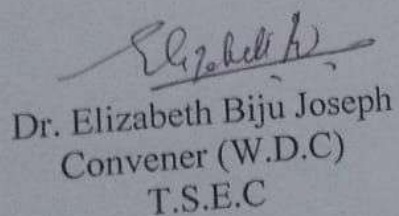 Dr. Elizabeth Biju Joseph
Convener (W.D.C)
T.S.E.C